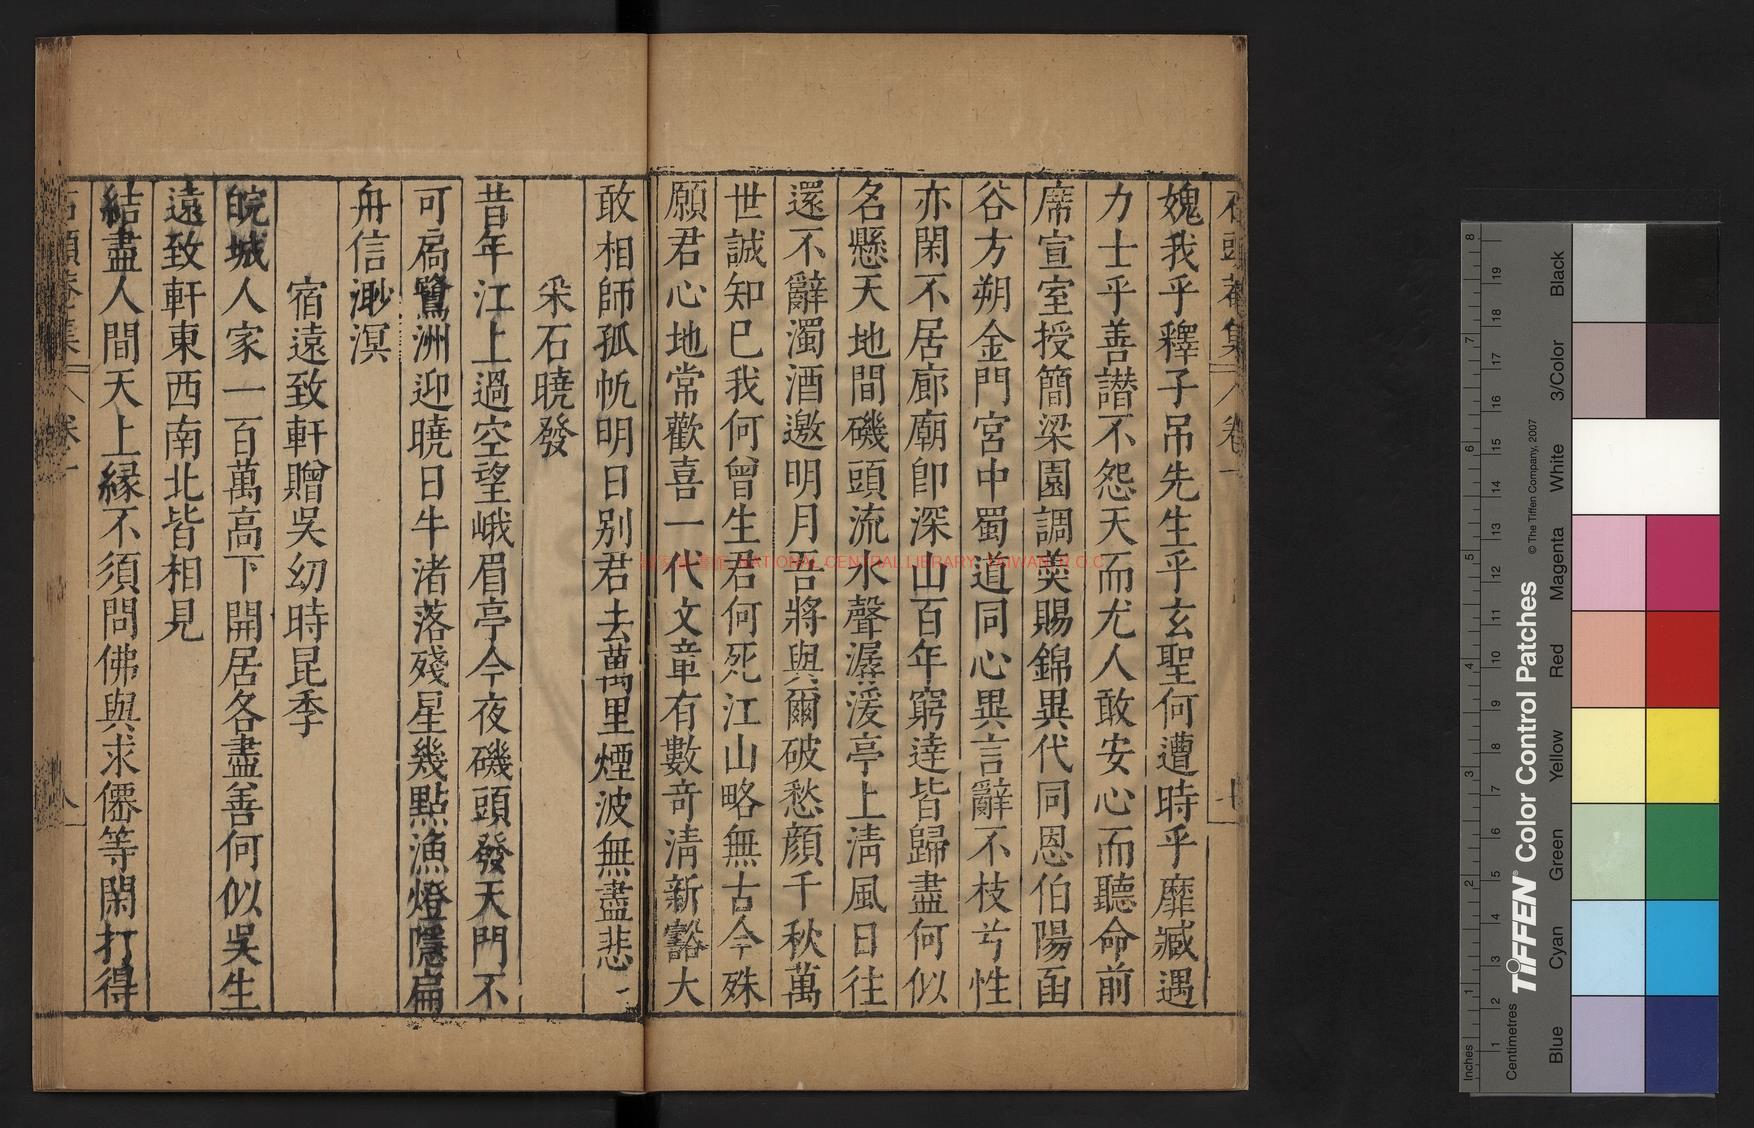 媿我乎釋子吊先生乎玄聖何遭時乎靡臧遇
力士乎善譖不怨天而尤人敢安心而聽命前
席宣室授簡梁園調羮賜錦異代同恩伯陽函
谷方朔金門宮中蜀道同心異言辭不枝兮性
亦閑不居廊廟卽深山百年窮逹皆歸盡何似
名懸天地間磯頭流水聲潺湲亭上清風日往
還不辭濁酒邀明月吾將與爾破愁顔千秋萬
世誠知已我何曾生君何死江山略無古今殊
願君心地常歡喜一代文章有數竒清新豁大
敢相師孤帆明日别君去萬里煙波無盡悲
采石曉發
昔年江上過空望峨眉亭今夜磯頭發天門不
可扃鷺洲迎曉日牛渚落殘星幾點漁燈隱扁
舟信渺溟
宿遠致軒贈吳㓜時昆季
皖城人家一百萬高下開居各盡善何似吳生
遠致軒東西南北皆相見
結盡人間天上緣不須問佛與求僊等閑打得
石頭菴集 卷一 八
國家圖書館 NATIONAL CENTRAL LIBRARY, TAIWAN R.O.C
Inches
Centimetres
TIFFEN® Color Control Patches
© The Tiffen Company, 2007
Blue
Cyan
Green
Yellow
Red
Magenta
White
3/Color
Black